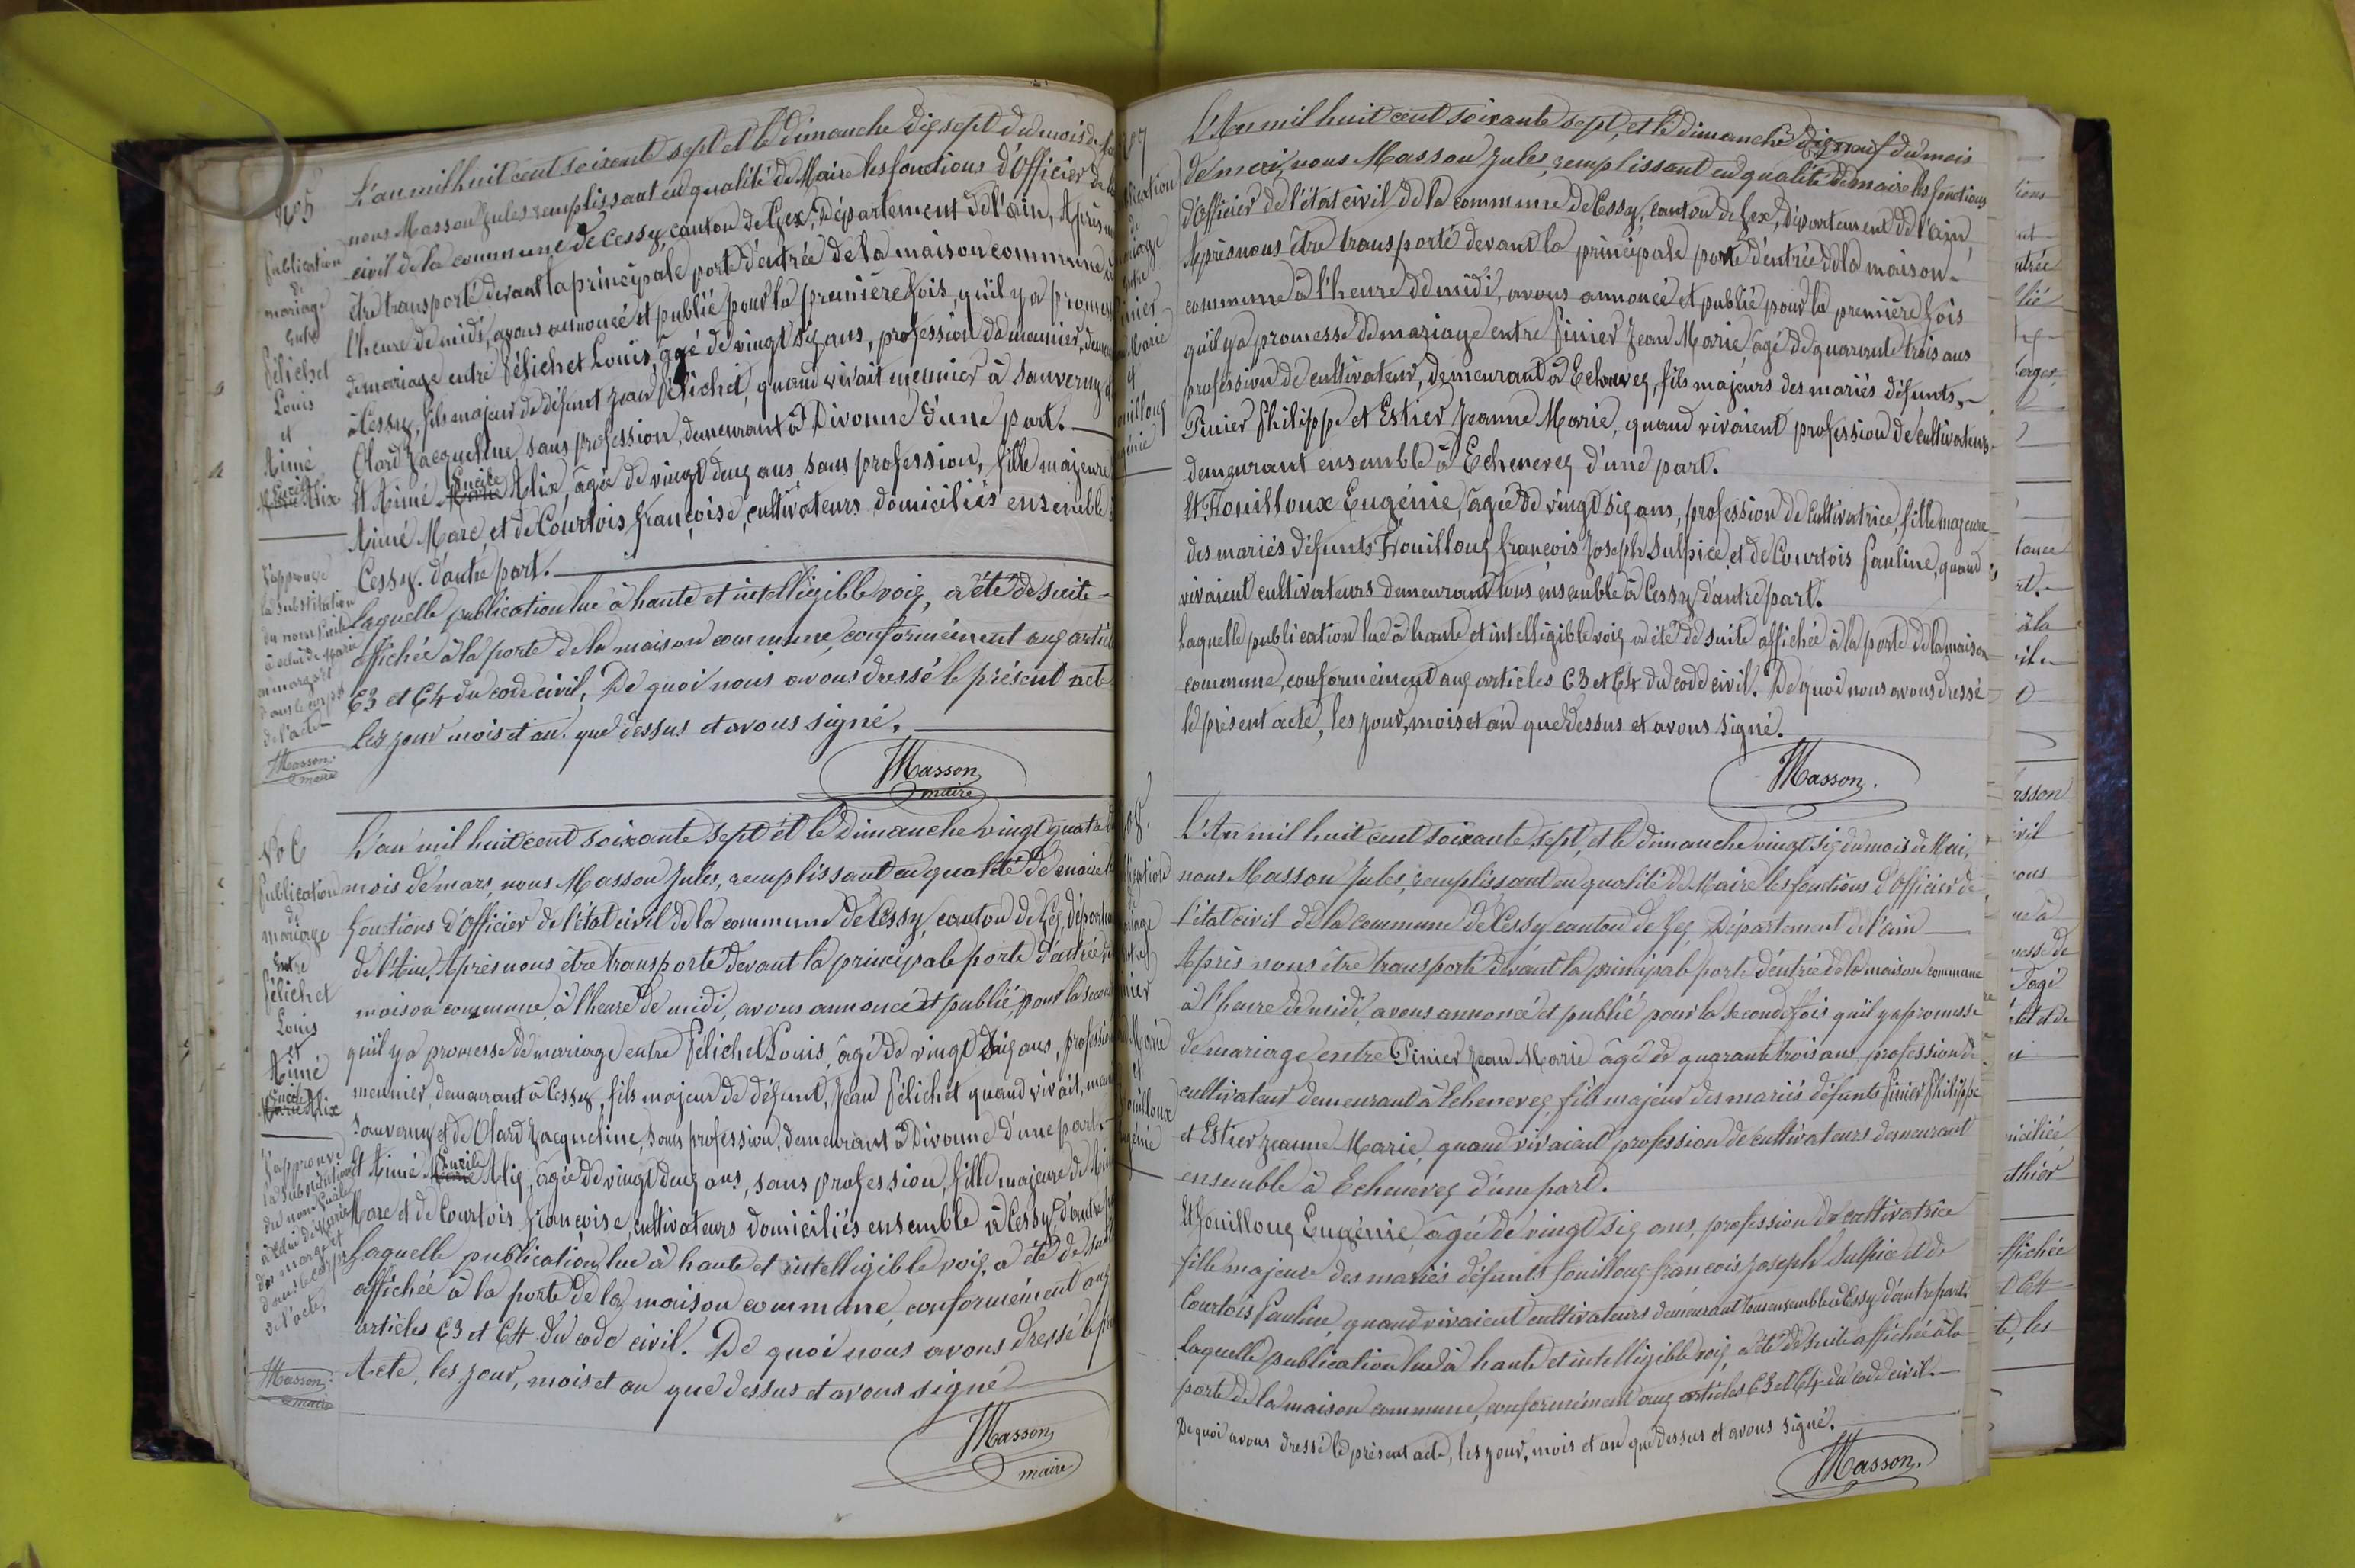 No 5
Publication
de
mariage
entre
Pélichet
Louis
et
Aimé
Lucile
Marie Alix
J'approuve
la substitution
du nom Lucile
à celui de Marie
en marge et
dans le corps
de l'acte
JMasson
maire
L'an mil huit cent soixante sept et le dimanche dix sept du mois de
nous Masson Jules remplissant en qualité de Maire les fonctions d'Officier de
civil de la commune de Cessy, canton de Gex, Département de l'ain, Après
être transporté devant la principale porte d'entrée de la maison commune
l'heure de midi, avons annoncé et publié pour la première fois, qu'il y a
de mariage entre Pélichet Louis, âgé de vingt six ans, profession de meunier,
à Cessy, fils majeur de défunt Jean Pélichet, quand vivait meunier à Sauverny
Olard Jacqueline, sans profession, demeurant à Divonne d'une part.
Et Aimé Marie Lucile Alix, âgée de vingt deux ans, sans profession, fille majeure
Aimé Marc, et de Courtois françoise, cultivateurs domiciliés ensemble
Cessy. d'autre part.
Laquelle publication lue à haute et intelligible voix, a été de suite
affichée à la porte de la maison commune, conformément aux
63 et 64 du code civil, De quoi nous avons dressé le présent acte
Les jour mois et an que dessus et avons signé.
JMasson
maire
No 6
Publication
de
mariage
Entre
Pélichet
Louis
et
Aimé
Lucile
Marie Alix
J'approuve
la substitution
du nom Lucile
à celui de Marie
en marge et
dans le corps
de l'acte,
JMasson
maire
L'an mil huit cent soixante sept et le dimanche vingt quatre
mois de mars, nous Masson Jules, remplissant en qualité de maire
fonctions d'Officier de l'état civil de la commune de Cessy, canton de Gex,
de l'Ain, Après nous être transporté devant la principale porte d'entrée
maison commune, à l'heure de midi, avons annoncé et publié, pour la
qu'il y a promesse de mariage entre Pélichet Louis, âgé de vingt six ans,
meunier, demeurant à Cessy, fils majeur de défunt, Jean Pélichet quand vivait,
Sauverny et de Olard Jacqueline, sans profession, demeurant à Divonne d'une part.
Et Aimé Marie Lucile Alix, âgée de vingt deux ans, sans profession, fille majeure de
Marc et de Courtois françoise, cultivateurs domiciliés ensemble à Cessy, d'autre
Laquelle publication lue à haute et intelligible voix, a été de
affichée à la porte de la maison commune, conformément aux
articles 63 et 64 du code civil. De quoi nous avons dressé le
Acte, les jour, mois et an que dessus et avons signé
JMasson
maire
L'An mil huit cent soixante sept, et le dimanche dix neuf du mois
de mai, nous Masson Jules, remplissant en qualité de maire les fonctions
d'Officier de l'état civil de la commune de Cessy, canton de Gex, département de l'ain,
Après nous être transporté devant la principale porte d'entrée de la maison
commune à l'heure de midi, avons annoncé et publié pour la première fois
qu'il y a promesse de mariage entre Pinier Jean Marie, âgé de quarante trois ans
profession de cultivateur, demeurant à Echenevex, fils majeurs des mariés défunts,
Pinier Philippe et Estier Jeanne Marie, quand vivaient profession de cultivateurs
demeurant ensemble à Echenevex d'une part.
Et Fouilloux Eugénie, âgée de vingt six ans, profession de Cultivatrice, fille majeure
des mariés défunts Fouilloux françois Joseph Sulpice, et de Courtois Pauline, quand
vivaient cultivateurs demeurant tous ensemble à Cessy d'autre part.
Laquelle publication lue à haute et intelligible voix a été de suite affichée à la porte de la maison
commune, conformément aux articles 63 et 64 du code civil. De quoi nous avons dressé
le présent acte, les jour, mois et an que dessus et avons signé.
JMasson.
L'An mil huit cent soixante sept, et le dimanche vingt six du mois de Mai,
nous Masson Jules, remplissant en qualité de Maire les fonctions d'Officier de
l'état civil de la commune de Cessy canton de Gex, Département de l'ain
Après nous être transporté devant la principale porte d'entrée de la maison commune
à l'heure de midi, avons annoncé et publié pour la seconde fois qu'il y a promesse
de mariage entre Pinier Jean Marie âgé de quarante trois ans profession de
cultivateur demeurant à Echenevex, fils majeur des mariés défunts Pinier Philippe
et Estier Jeanne Marie, quand vivaient profession de cultivateurs demeurant
ensemble à Echenevex d'une part.
Et fouilloux Eugénie, âgée de vingt six ans, profession de cultivatrice
fille majeure des mariés défunts fouilloux françois Joseph Sulpice et de
Courtois Pauline, quand vivaient cultivateurs demeurant tous ensemble à Cessy d'autre part.
Laquelle publication lue à haute et intelligible voix, a été de suite affichée à la
porte de la maison commune, conformément aux articles 63 et 64 du code civil.
De quoi avons dressé le présent acte, les jour, mois et an que dessus et avons signé.
JMasson.